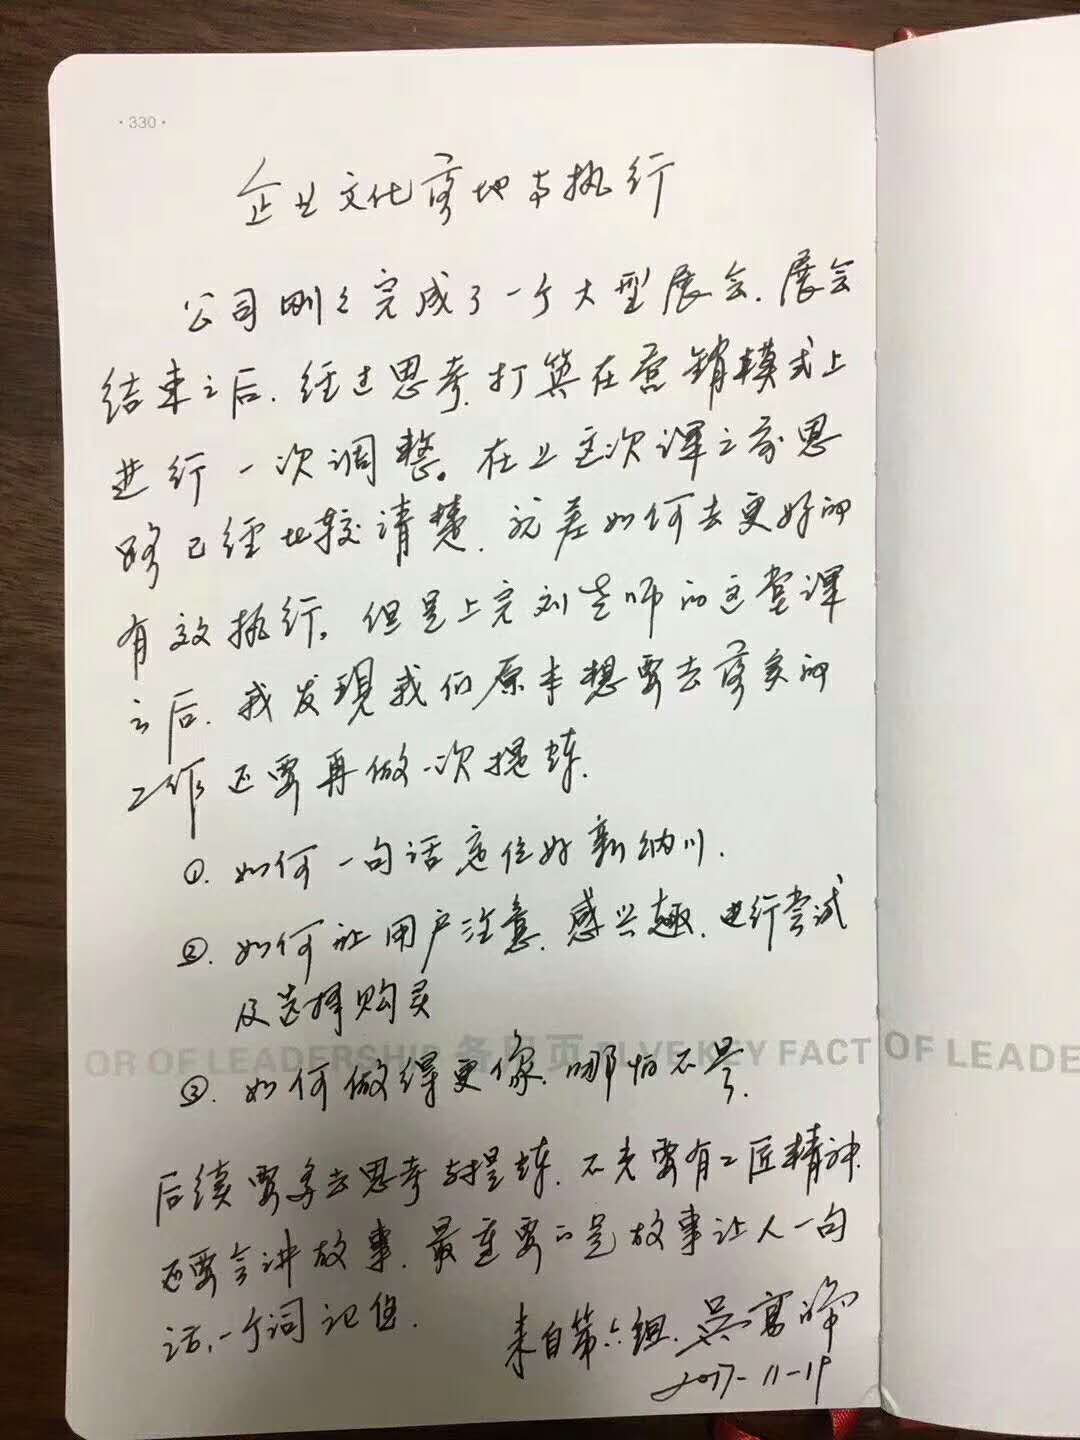 ·330·
企业文化落地与执行
公司刚刚完成了一个大型展会.展会
结束之后.经过思考.打算在营销模式上
进行一次调整。在上这次课之前思
路已经比较清楚.就差如何去更好的
有效执行。但是上完刘老师的这堂课
之后.我发现我们原来想要去落实的
工作还要再做一次提炼.
①.如何一句话定位好新纳川.
②.如何让用户注意.感兴趣.进行尝试
及选择购买
OR OF LEADERSHIP 备用页 FIVE KEY FACT OF LEADE
③.如何做得更像.哪怕不是.
后续要多去思考与提炼.不光要有工匠精神.
还要会讲故事.最重要的是故事让人一句
话,一个词记住.
来自第六组.吴富
2017-11-19